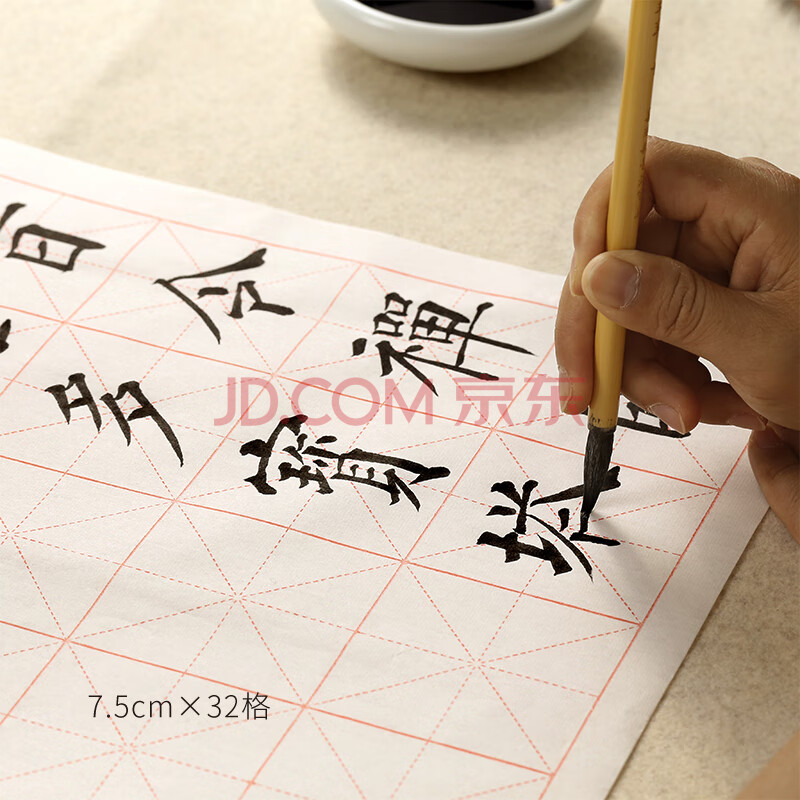 百令禪
多寶塔
JD.COM 京东
7.5cm×32格